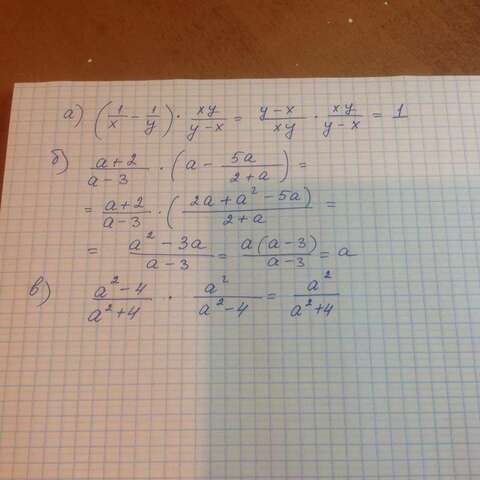 а) (1/x - 1/y) · xy/(y-x) = (y-x)/xy · xy/(y-x) = 1
б) (a+2)/(a-3) · (a - 5a/(2+a)) =
= (a+2)/(a-3) · ((2a+a²-5a)/(2+a)) =
= (a²-3a)/(a-3) = a(a-3)/(a-3) = a
в) (a²-4)/(a²+4) · a²/(a²-4) = a²/(a²+4)